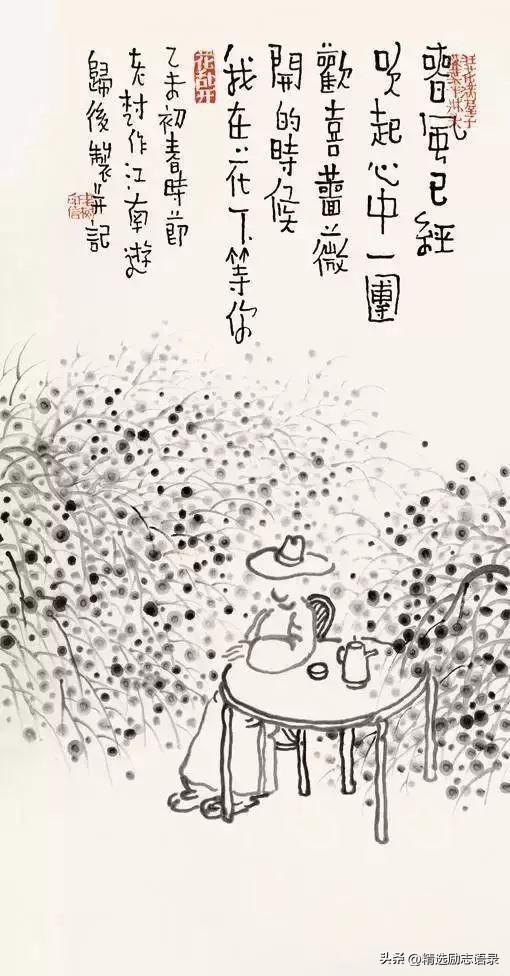 春風已經
吹起心中一團
歡喜薔薇
開的時候
我在花下等你
花乱开
乙未初春時節
老树作江南遊
歸後製并記
头条 @精选励志语录